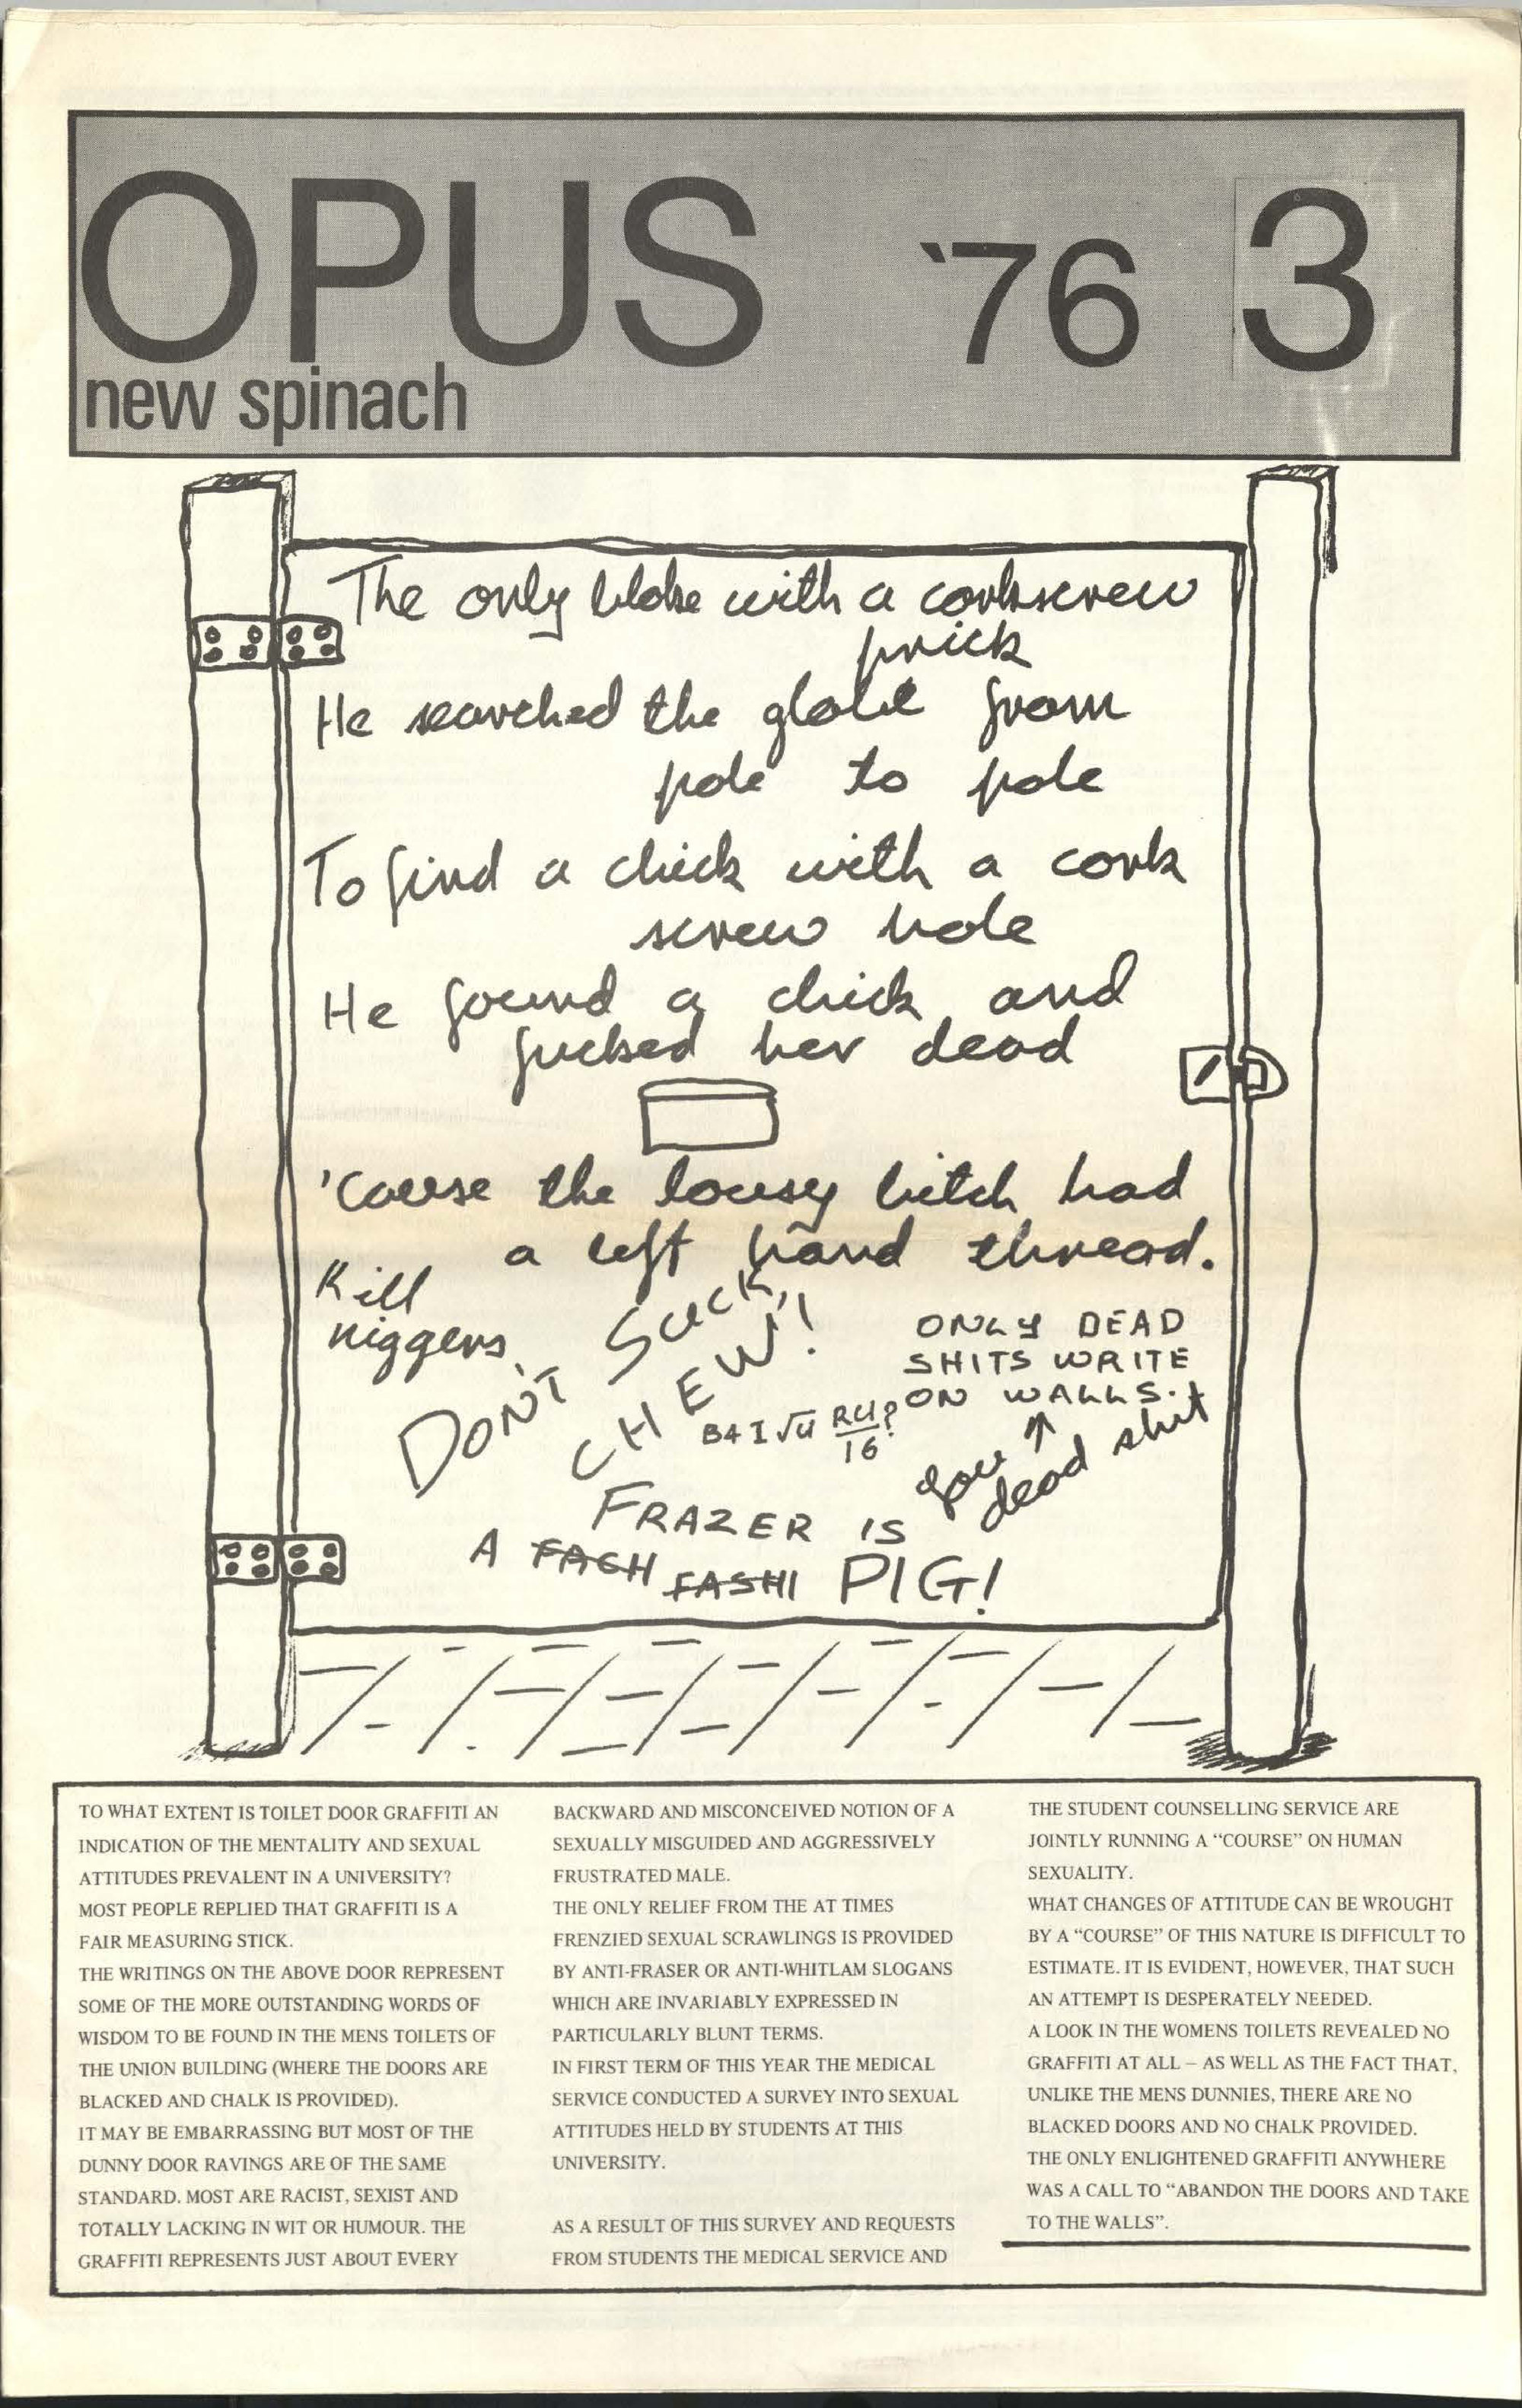 OPUS '76 3
new spinach
The only bloke with a corkscrew
prick
He searched the globe from
pole to pole
To find a chick with a cork
screw hole
He found a chick and
fucked her dead
'Cause the lousy bitch had
a left hand thread.
Kill
niggers
DON'T SUCK,
CHEW!!
B4 I √U RU/16?
ONLY DEAD
SHITS WRITE
ON WALLS.
you
dead shit
FRAZER IS
A FACH FASHI PIG!
TO WHAT EXTENT IS TOILET DOOR GRAFFITI AN
INDICATION OF THE MENTALITY AND SEXUAL
ATTITUDES PREVALENT IN A UNIVERSITY?
MOST PEOPLE REPLIED THAT GRAFFITI IS A
FAIR MEASURING STICK.
THE WRITINGS ON THE ABOVE DOOR REPRESENT
SOME OF THE MORE OUTSTANDING WORDS OF
WISDOM TO BE FOUND IN THE MENS TOILETS OF
THE UNION BUILDING (WHERE THE DOORS ARE
BLACKED AND CHALK IS PROVIDED).
IT MAY BE EMBARRASSING BUT MOST OF THE
DUNNY DOOR RAVINGS ARE OF THE SAME
STANDARD. MOST ARE RACIST, SEXIST AND
TOTALLY LACKING IN WIT OR HUMOUR. THE
GRAFFITI REPRESENTS JUST ABOUT EVERY
BACKWARD AND MISCONCEIVED NOTION OF A
SEXUALLY MISGUIDED AND AGGRESSIVELY
FRUSTRATED MALE.
THE ONLY RELIEF FROM THE AT TIMES
FRENZIED SEXUAL SCRAWLINGS IS PROVIDED
BY ANTI-FRASER OR ANTI-WHITLAM SLOGANS
WHICH ARE INVARIABLY EXPRESSED IN
PARTICULARLY BLUNT TERMS.
IN FIRST TERM OF THIS YEAR THE MEDICAL
SERVICE CONDUCTED A SURVEY INTO SEXUAL
ATTITUDES HELD BY STUDENTS AT THIS
UNIVERSITY.
AS A RESULT OF THIS SURVEY AND REQUESTS
FROM STUDENTS THE MEDICAL SERVICE AND
THE STUDENT COUNSELLING SERVICE ARE
JOINTLY RUNNING A "COURSE" ON HUMAN
SEXUALITY.
WHAT CHANGES OF ATTITUDE CAN BE WROUGHT
BY A "COURSE" OF THIS NATURE IS DIFFICULT TO
ESTIMATE. IT IS EVIDENT, HOWEVER, THAT SUCH
AN ATTEMPT IS DESPERATELY NEEDED.
A LOOK IN THE WOMENS TOILETS REVEALED NO
GRAFFITI AT ALL – AS WELL AS THE FACT THAT,
UNLIKE THE MENS DUNNIES, THERE ARE NO
BLACKED DOORS AND NO CHALK PROVIDED.
THE ONLY ENLIGHTENED GRAFFITI ANYWHERE
WAS A CALL TO "ABANDON THE DOORS AND TAKE
TO THE WALLS".